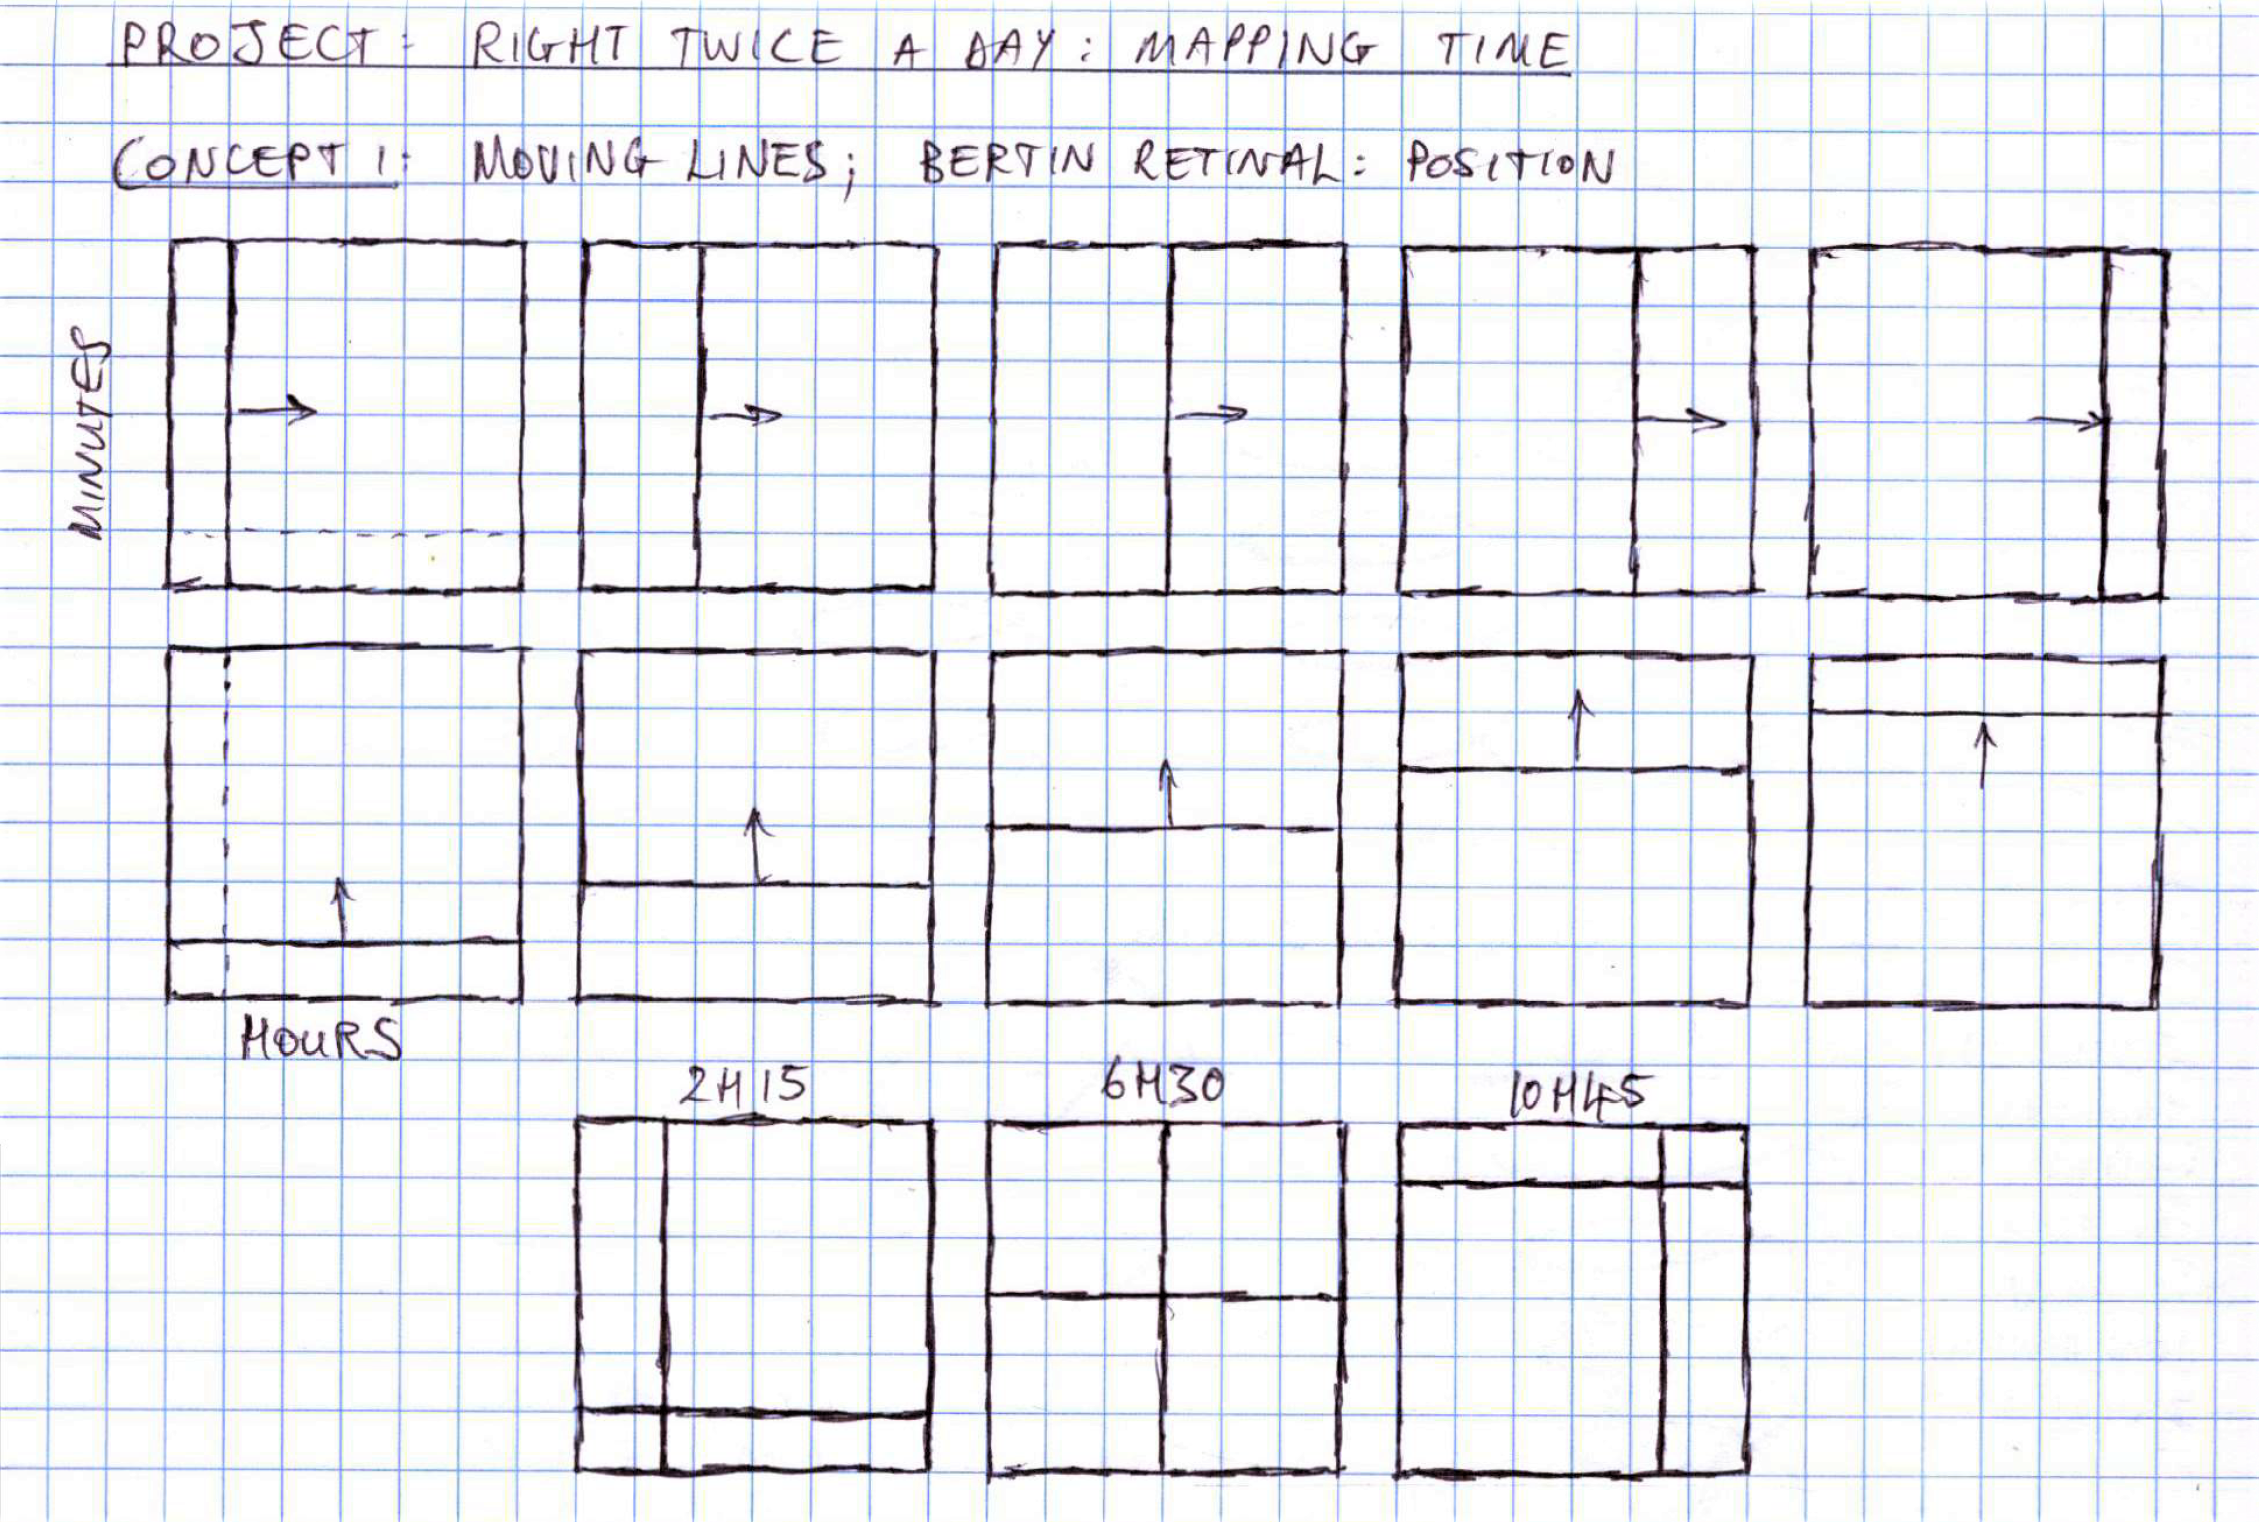 PROJECT: RIGHT TWICE A DAY: MAPPING TIME
CONCEPT 1: MOVING LINES; BERTIN RETINAL: POSITION
MINUTES
HOURS
2H15
6H30
10H45